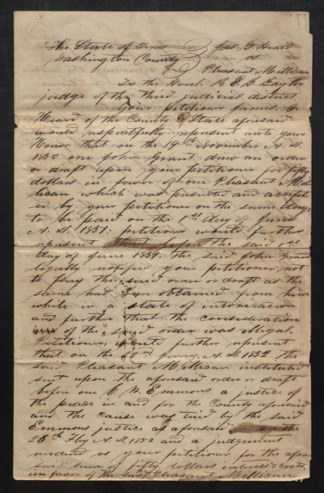 The State of Texas Jas. G Heard
Washington County vs
Pleasant McAllean
To the Honl. R. E. B. Baylor
judge of the third judicial district
Your petitioner James G
Heard of the County & State aforesaid
would respectfully represent unto your
Honor that on the 18th November A. D.
1850 one John Grant drew an order
or draft upon your petitioner for fifty
dollars in favor of one Pleasant
which was presented and accept
ed by your petitioner on the same day
to be paid on the 1st day of June
A. D. 1851. petitioner would further
represent that before the said 1st
day of June 1851. the said John Grant
legally notified your petitioner not
to pay the said order or draft as the
same had been obtained from him
while in a state of intoxication
and further that the consideration
of the said order was illegal.
Petitioner, would further represent
that on the 28th A. D. 1852 the
said Pleasant McAllean instituted
suit upon the aforesaid order or draft
before one E. Emmons a justice of
the peace in and for the County aforesaid
and the cause was tried by the said
Emmons justice as aforesaid on the
28th A. D. 1852 and a judgement
rendered vs your petitioner for the afore
said sum of fifty dollars interest & costs
in favor of the said Pleasant McAllean